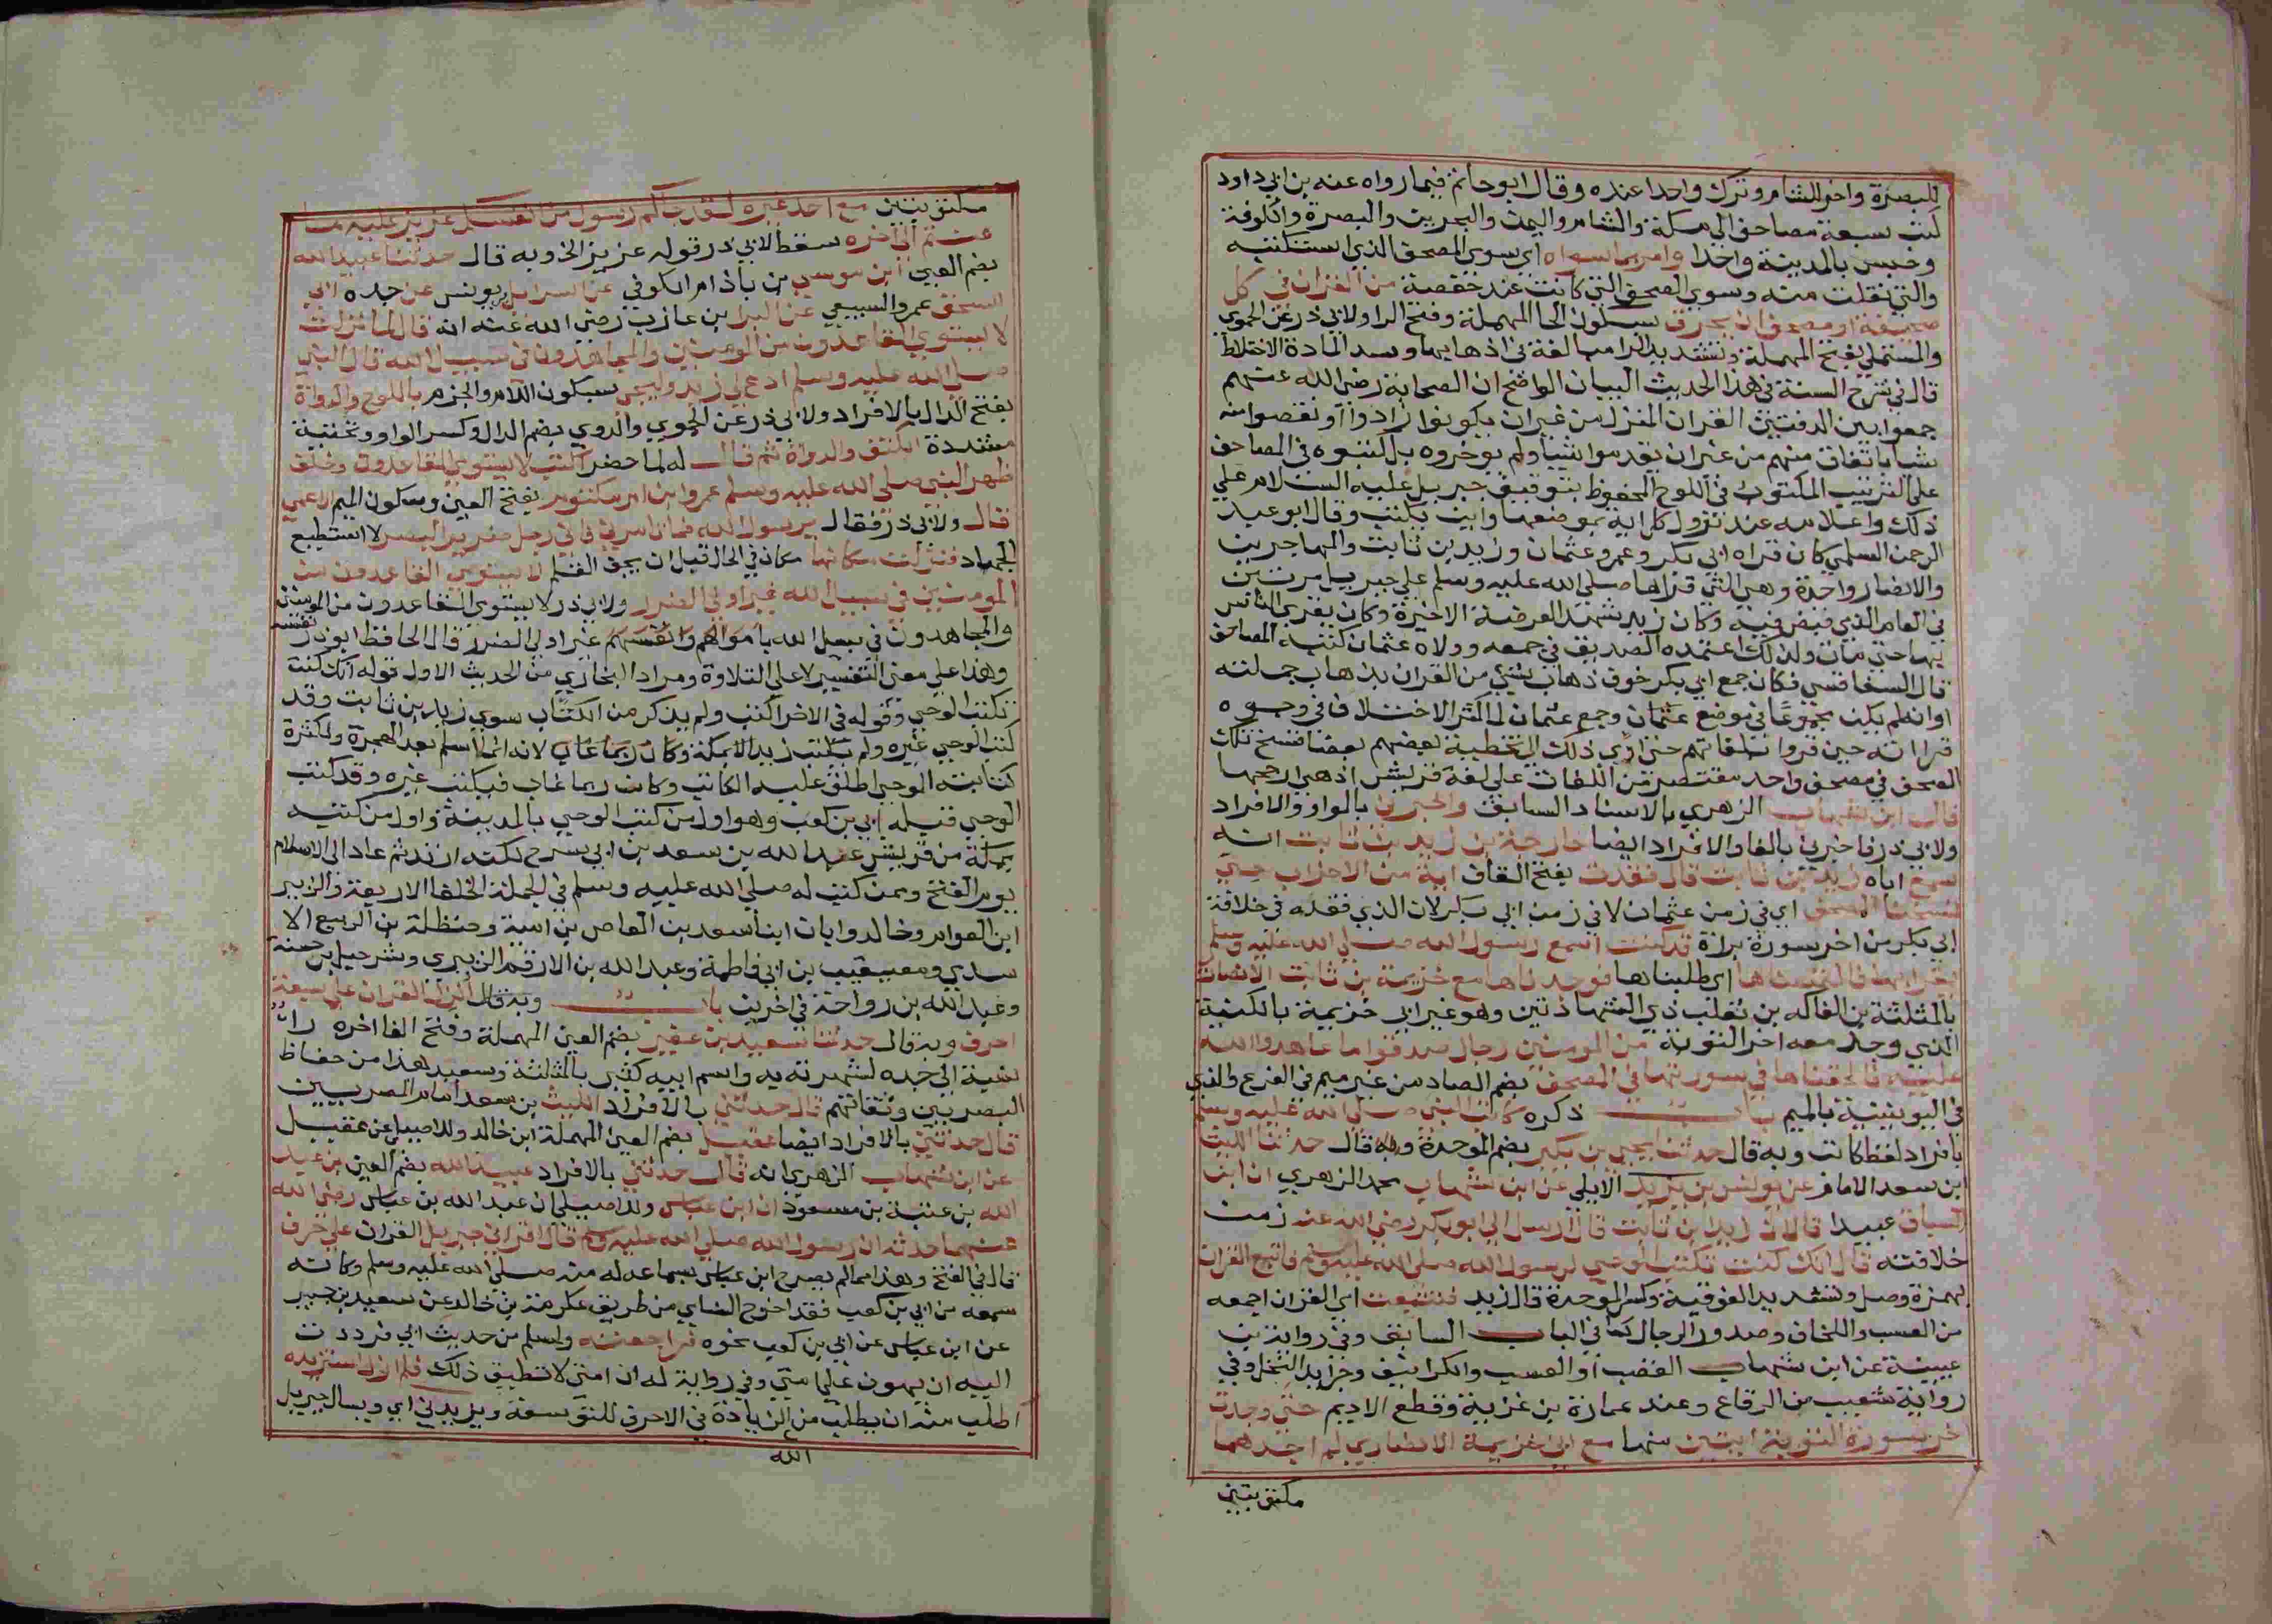 للبصرة واخر للشام وترك واحدا عنده وقال ابو حاتم فيما رواه عنه بن ابي داود
كتب سبعة مصاحف الي مكة والشام واليمن والبحرين والبصرة والكوفة
وحبس بالمدينة واحدا وامر بما سواه اي سوي المصحف الذي استكتبه
والتي نقلت منه وسوي الصحف التي كانت عند حفصة من القران في كل
صحيفة او مصحف ان يحرق بسكون الحا المهملة وفتح الرا ولابي ذر عن الحموي
والمستملي بفتح المهملة وتشديد الرا مبالغة في اذهابها وسد المادة الاختلاط
قال في شرح السنة في هذا الحديث البيان الواضح ان الصحابة رضي الله عنهم
جمعوا بين الدفتين القران المنزل من غير ان يكونوا زادوا او نقصوا منه
شيا باتفاق منهم من غير ان يقدموا شيا ولم يوخروه بل كتبوه في المصاحف
علي الترتيب المكتوب في اللوح المحفوظ بتوقيف جبريل عليه السلام علي
ذلك واعلامه عند نزول كل اية بموضعها واين يكتب وقال ابو عبد
الرحمن السلمي كان قراه ابي بكر وعمر وعثمان وزيد بن ثابت والمهاجرين
والانصار واحدة وهي التي قراها صلي الله عليه وسلم علي جبريل مرتين
في العام الذي قبض فيه وكان زيد شهد العرضة الاخيرة وكان يقري الناس
بها حتي مات ولذلك اعتمده الصديق في جمعه وولاه عثمان كتبة المصاحف
قال السفاقسي فكان جمع ابي بكر خوف ذهاب شي من القران بذهاب جملته
او انه لم يكن مجموعا في موضع عثمان وجمع عثمان لما كثر الاختلاف في وجوه
قراانه حين قروا بلغاتهم حتي ادي ذلك الي تخطية بعضهم بعضا فنسخ تلك
الصحف في مصحف واحد مقتصرا من اللغات علي لغة قريش اذ هي ارجحها
قال ابن شهاب الزهري بالاسناد السابق واخبرني بالواو والافراد
ولابي ذر فاخبرني بالفا والافراد ايضا خارجة بن زيد بن ثابت انه
سمع اباه زيد بن ثابت قال فقدت بفتح القاف اية من الاحزاب حين
نسخنا المصحف اي في زمن عثمان لا في زمن ابي بكر لان الذي فقده في خلافة
ابي بكر من اخر سورة براة قد كنت اسمع رسول الله صلي الله عليه وسلم
يقرا بها فالتمسناها اي طلبناها فوجدناها مع خزيمة بن ثابت الانصاري
بالمثلثة بن الفاكه بن ثعلب ذي الشهادتين وهو غير ابي خزيمة بالكنية
الذي وجد معه اخر التوبة من المومنين رجال صدقوا ما عاهدوا الله
عليه فالحقناها في سورتها في المصحف بضم الصاد من غير ميم في الفرع والذي
في اليونينية بالميم باب ذكره كاتب النبي صلي الله عليه وسلم
بافراد لفظ كاتب وبه قال حدثنا يحيي بن بكير بضم الموحدة وبه قال حدثنا الليث
ابن سعد الامام عن يونس بن يزيد الايلي عن ابن شهاب محمد الزهري ان ابن
السباق عبيدا قال ان زيد ابن ثابت قال ارسل الي ابو بكر رضي الله عنه زمن
خلافته قال انك كنت تكتب الوحي لرسول الله صلي الله عليه وسلم فاتبع القران
بهمزة وصل وتشديد الفوقية وكسر الموحدة قال زيد فتتبعت اي القران اجمعه
من العسب واللخاف وصدور الرجال كما في الباب السابق وفي رواية بن
عيينة عن ابن شهاب القضب او العسب والكرانيف وجرايد النخل وفي
رواية شعيب من الرقاع وعند عمارة بن غزية وقطع الاديم حتي وجدت
اخر سورة التوبة ايتين منها مع ابي خزيمة الانصاري لم اجدهما
مكتوبتين
مكتوبتين مع احد غيره لقد جاكم رسول من انفسكم عزيز عليه ما
عنتم الي اخره سقط لابي ذر قوله عزيز الخ وبه قال حدثنا عبيد الله
بضم العين ابن موسي بن باذام الكوفي عن اسرايل بن يونس عن جده ابي
اسحق عمرو السبيعي عن البرا بن عازب رضي الله عنه انه قال لما نزلت
لا يستوي القاعدون من المومنين والمجاهدون في سبيل الله قال النبي
صلي الله عليه وسلم ادع لي زيد وليجي بسكون اللام والجزم باللوح والدواة
بفتح الدال بالافراد ولابي ذر عن الحموي والدوي بضم الدال وكسر الواو وتحتية
مشددة الكتف والدواة ثم قال له لما حضر اكتب لا يستوي القاعدون وخلف
ظهر النبي صلي الله عليه وسلم عمرو ابن ام مكتوم بفتح العين وسكون الميم الاعمي
قال ولابي ذر فقال يرسول الله فما تامرني فاني رجل ضرير البصر لا استطيع
الجهاد فنزلت مكانها مكان في الحال قبل ان يجف القلم لا يستوي القاعدون من
المومنين في سبيل الله غير اولي الضرر ولابي ذر لا يستوي القاعدون من المومنين
والمجاهدون في سبيل الله باموالهم وانفسهم غير اولي الضرر قال الحافظ ابو ذر نفسه
وهذا علي معني التفسير لا علي التلاوة ومراد البخاري من الحديث الاول قوله انك كنت
تكتب الوحي وقوله في الاخر اكتب ولم يذكر من الكتاب سوي زيد بن ثابت وقد
كتب الوحي غيره ولم يكتب زيد الا بمكة وكان ربما غاب لانه انما اسلم بعد الهجرة ولكثرة
كتابته الوحي اطلق عليه الكاتب وكان ربما غاب فيكتب غيره وقد كتب
الوحي قبله ابي بن كعب وهو اول من كتب الوحي بالمدينة واول من كتبه
بمكة من قريش عبد الله بن سعد بن ابي سرح لكنه ارتد ثم عاد الي الاسلام
يوم الفتح وممن كتب له صلي الله عليه وسلم في الجملة الخلفا الاربعة والزبير
ابن العوام وخالد وابان ابنا سعد بن العاص بن امية وحنظلة بن الربيع الا
سدي ومعيقيب بن ابي فاطمة وعبد الله بن الارقم الزهري وشرحبيل بن حسنة
وعبد الله بن رواحة في اخرين باب وبه قال انزل القران علي سبعة
احرف وبه قال حدثنا سعيد بن عفير بضم العين المهملة وفتح الفا اخره را
نسبة الي جده لشهرته به واسم ابيه كثير بالمثلثة وسعيد هذا من حفاظ
البصريين وثقاتهم قال حدثني بالافراد الليث بن سعد امام المصريين
قال حدثني بالافراد ايضا عقيل بضم العين المهملة ابن خالد وللاصيلي عن عقيل
عن ابن شهاب الزهري انه قال حدثني بالافراد عبيد الله بضم العين بن عبد
الله بن عتبة بن مسعود ان ابن عباس وللاصيلي ان عبد الله بن عباس رضي الله
عنهما حدثه ان رسول الله صلي الله عليه وسلم قال اقراني جبريل القران علي حرف
قال في الفتح وهذا مما لم يصرح ابن عباس بسماعه له منه صلي الله عليه وسلم وكانه
سمعه من ابي بن كعب فقد اخرج النساي من طريق عكرمة بن خالد عن سعيد بن جبير
عن ابن عباس عن ابي بن كعب نحوه فراجعته ولمسلم من حديث ابي فرددت
اليه ان يهون علي امتي وفي رواية له ان امتي لا تطيق ذلك فلم ازل استزيده
اطلب منه ان يطلب من الزيادة في الاحرف للتوسعة ويزيدني اي ويسال جبريل
الله